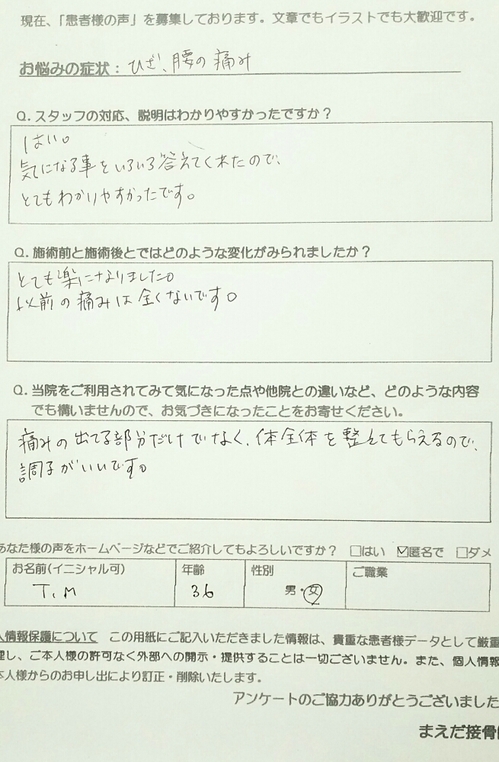 現在、「患者様の声」を募集しております。文章でもイラストでも大歓迎です。
お悩みの症状：ひざ、腰の痛み
Q.スタッフの対応、説明はわかりやすかったですか？
はい。
気になる事をいろいろ答えてくれたので、
とてもわかりやすかったです。
Q.施術前と施術後とではどのような変化がみられましたか？
とても楽になりました。
以前の痛みは全くないです。
Q.当院をご利用されてみて気になった点や他院との違いなど、どのような内容
でも構いませんので、お気づきになったことをお寄せください。
痛みの出てる部分だけでなく、体全体を整えてもらえるので、
調子がいいです。
あなた様の声をホームページなどでご紹介してもよろしいですか？ □はい ☑匿名で □ダメ
お名前(イニシャル可) 年齢 性別 ご職業
T.M 36 男・女
人情報保護について この用紙にご記入いただきました情報は、貴重な患者様データとして厳重
理し、ご本人様の許可なく外部への開示・提供することは一切ございません。また、個人情報
本人様からのお申し出により訂正・削除いたします。
アンケートのご協力ありがとうございました
まえだ接骨